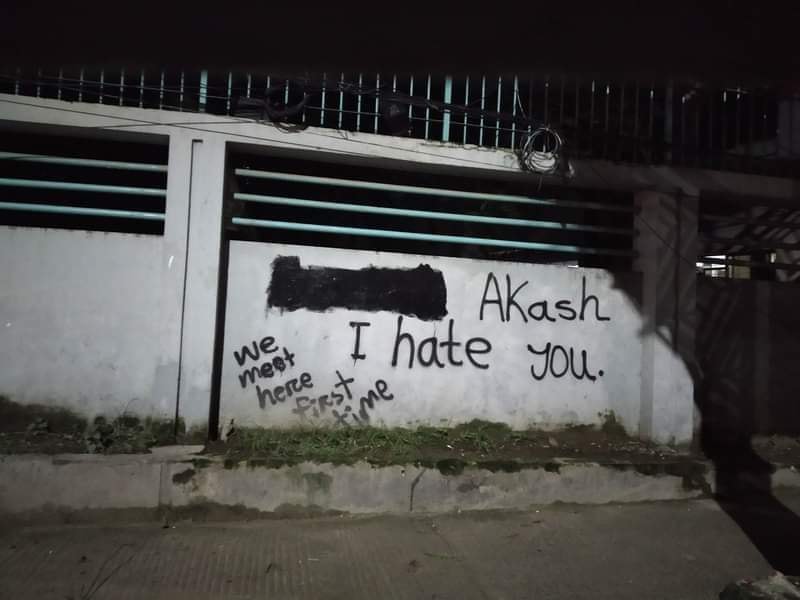 AKash
I hate you.
we
meet
here
first
time